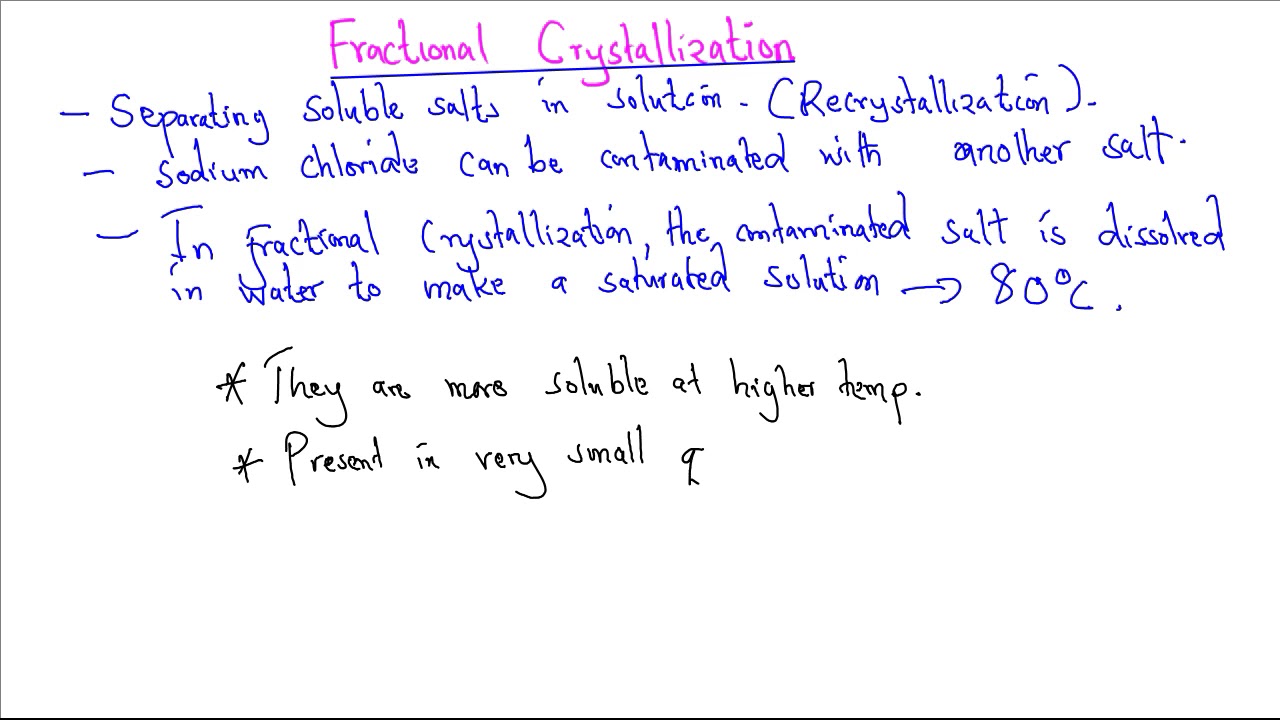 Fractional Crystallization
- Separating soluble salts in solution. (Recrystallization).
- Sodium chloride can be contaminated with another salt.
- In fractional Crystallization, the contaminated salt is dissolved
in water to make a saturated solution → 80°C.
* They are more soluble at higher temp.
* Present in very small q